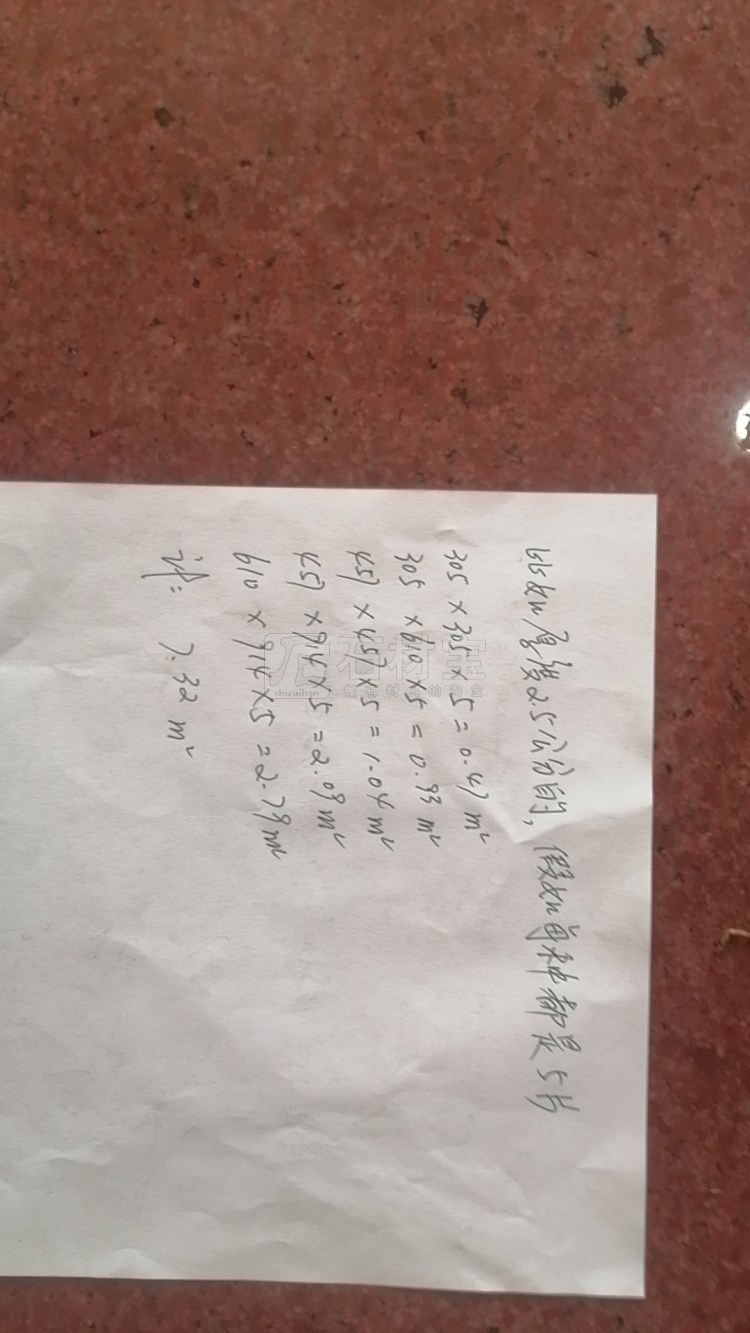 比如厚度2.5公分的，假如每种都是5片
305×305×5=0.47m²
305×610×5=0.93m²
457×457×5=1.04m²
457×914×5=2.09m²
610×914×5=2.79m²
计：7.32m²
石材宝
shicaibao